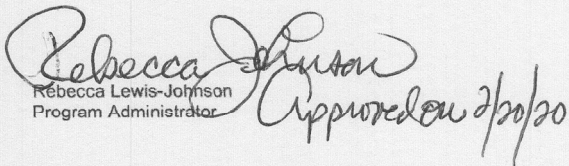 Rebecca Johnson
Rebecca Lewis-Johnson
Program Administrator
Approved on 2/20/20